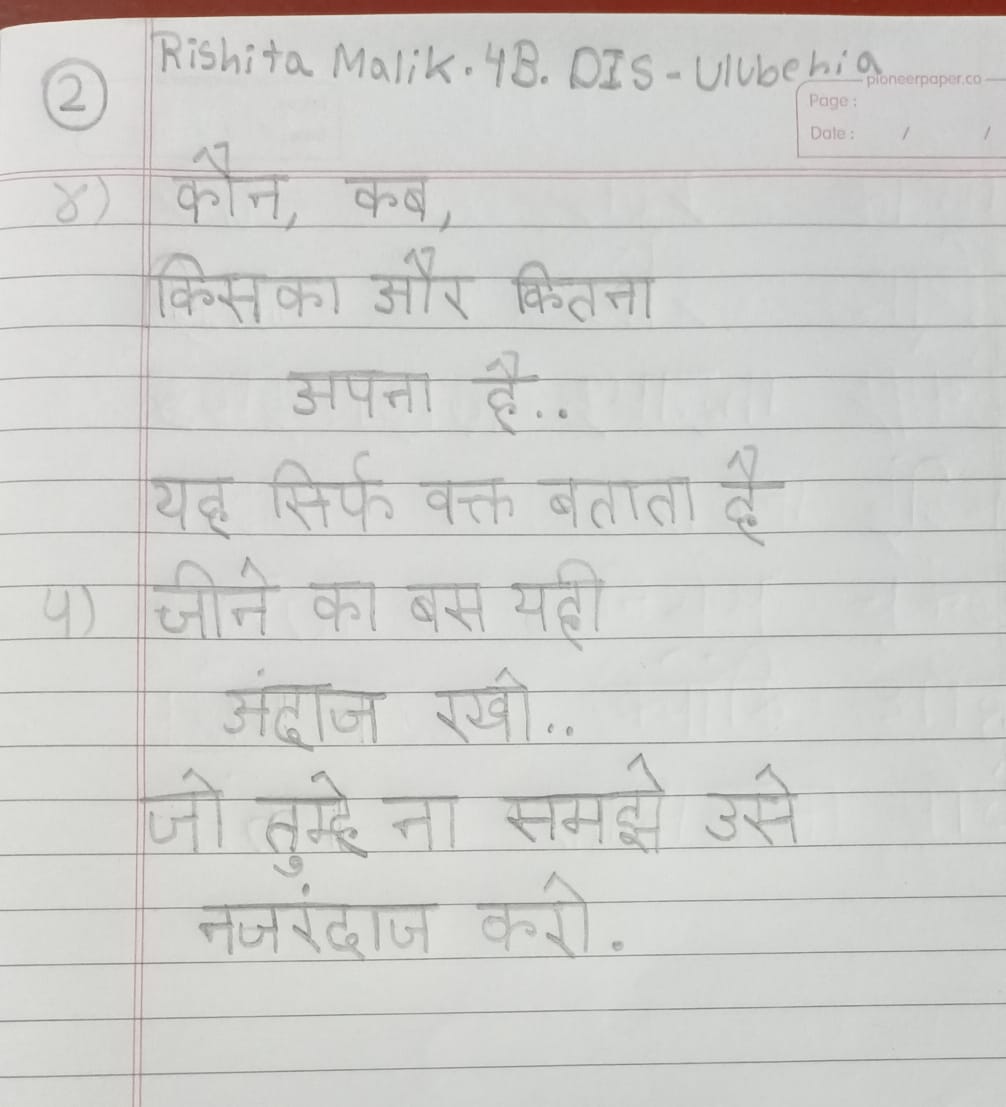 Rishita Malik. 4B. DIS - Ulubehia
pioneerpaper.co
②
Page :
Date : / /
४) कौन, कब,
किसका और कितना
अपना है..
यह सिर्फ वक्त बताता है
५) जीने का बस यही
अंदाज रखो..
जो तुम्हे ना समझे उसे
नजरंदाज करो.